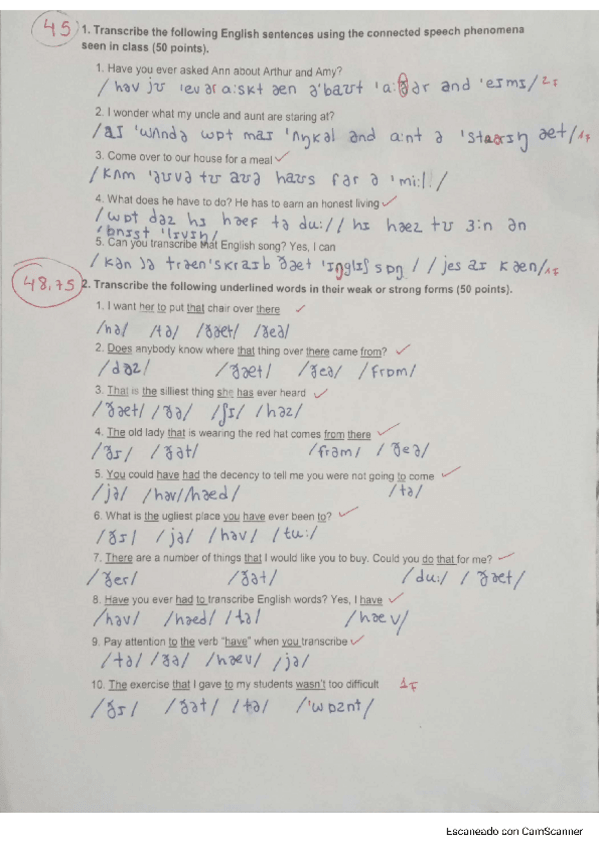 45
1. Transcribe the following English sentences using the connected speech phenomena
seen in class (50 points).
1. Have you ever asked Ann about Arthur and Amy?
/həv jʊ ˈevər ɑːskt æn əˈbaʊt ˈɑːðər ənd ˈeɪmɪ/ 2F
2. I wonder what my uncle and aunt are staring at?
/aɪ ˈwʌndə wɒt maɪ ˈʌŋkəl ənd ɑːnt ə ˈsteərɪŋ æt/ 1F
3. Come over to our house for a meal
/kʌm ˈəʊvə tʊ aʊə haʊs fər ə ˈmiːl/
4. What does he have to do? He has to earn an honest living
/wɒt dəz hɪ hæf tə duː// hɪ hæz tʊ ɜːn ən
ˈɒnɪst ˈlɪvɪŋ/
5. Can you transcribe that English song? Yes, I can
/kən jə trænˈskraɪb ðæt ˈɪŋglɪʃ sɒŋ / / jes aɪ kæn/ 1F
48,75
2. Transcribe the following underlined words in their weak or strong forms (50 points).
1. I want her to put that chair over there
/hə/ /tə/ /ðæt/ /ðeə/
2. Does anybody know where that thing over there came from?
/dəz/ /ðæt/ /ðeə/ /frɒm/
3. That is the silliest thing she has ever heard
/ðæt/ /ðə/ /ʃɪ/ /həz/
4. The old lady that is wearing the red hat comes from there
/ðɪ/ /ðət/ /frəm/ /ðeə/
5. You could have had the decency to tell me you were not going to come
/jə/ /həv/ /hæd/ /tə/
6. What is the ugliest place you have ever been to?
/ðɪ/ /jə/ /həv/ /tuː/
7. There are a number of things that I would like you to buy. Could you do that for me?
/ðer/ /ðət/ /duː/ /ðæt/
8. Have you ever had to transcribe English words? Yes, I have
/həv/ /hæd/ /tə/ /hæv/
9. Pay attention to the verb "have" when you transcribe
/tə/ /ðə/ /hæv/ /jə/
10. The exercise that I gave to my students wasn't too difficult 1F
/ðɪ/ /ðət/ /tə/ /ˈwɒznt/
Escaneado con CamScanner